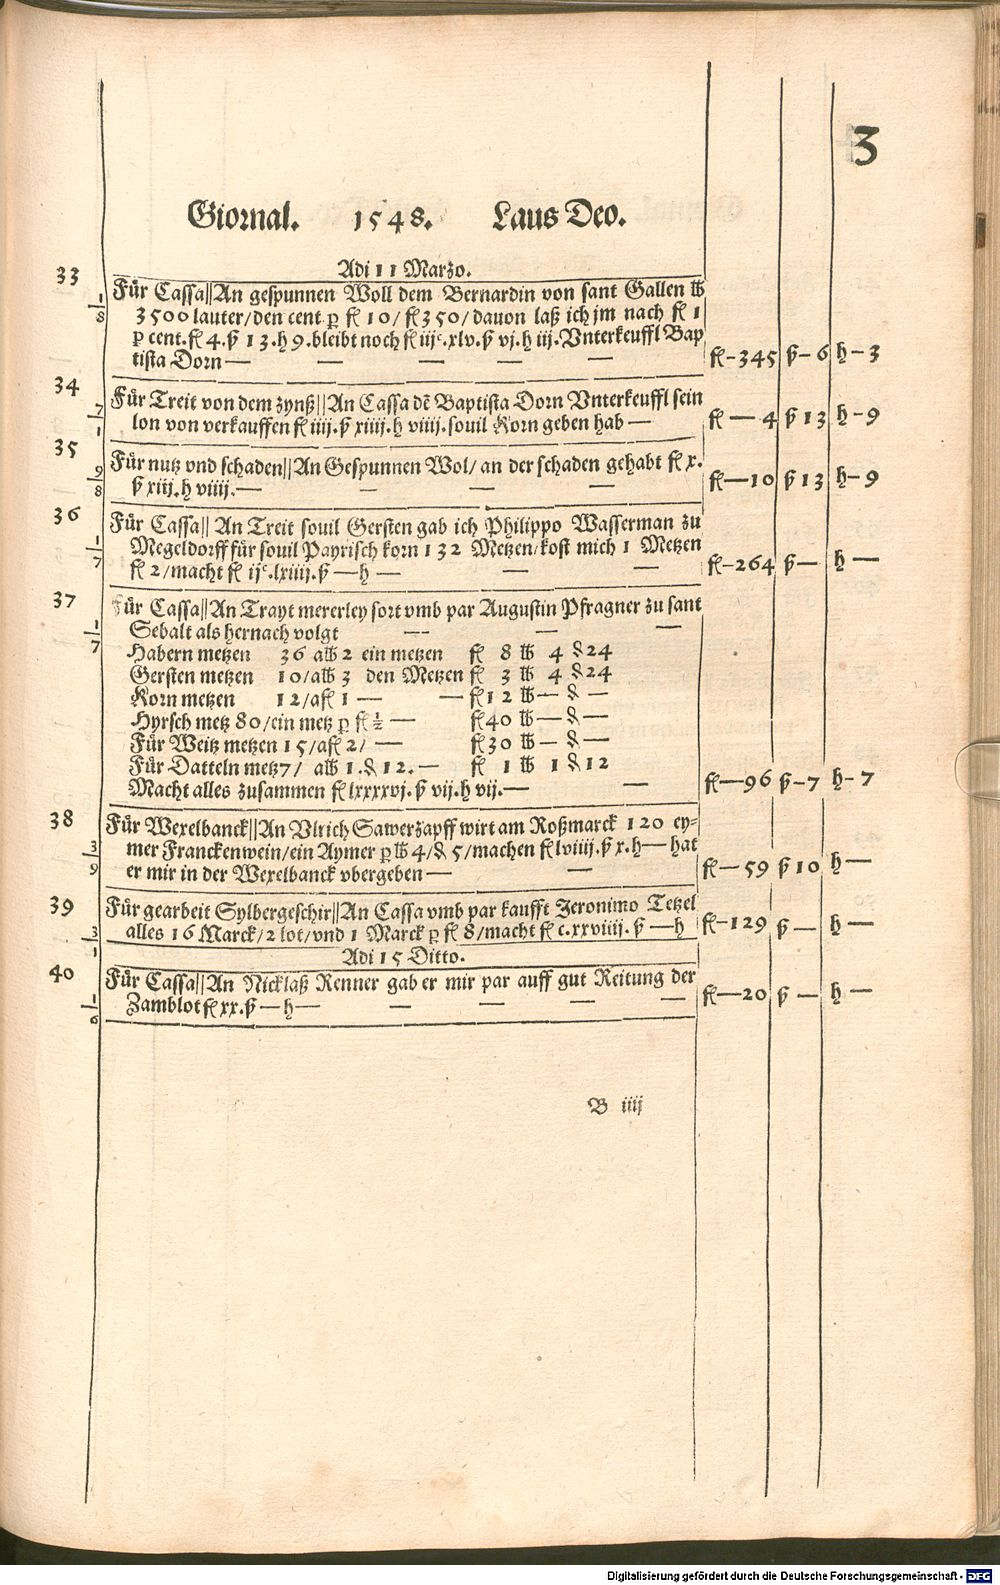 3
Giornal. 1548. Laus Deo.
Adi 11 Marzo.
33 Für Cassa||An gespunnen Woll dem Bernardin von sant Gallen ℔
1/8 3500 lauter/den cent. p fl 10/ fl 350/dauon laß ich jm nach fl 1
p cent. fl 4. ß 13. h 9. bleibt noch fl iijc. xlv. ß vj. h iij. Vnterkeuffl Bap
tista Dorn — — — — — fl—345 ß—6 h—3
34 Für Treit von dem zynß||An Cassa dē Baptista Dorn Vnterkeuffl sein
7/1 lon von verkauffen fl iiij. ß xiij. h viiij. souil Korn geben hab — fl—4 ß 13 h—9
35 Für nutz vnd schaden||An Gespunnen Wol/ an der schaden gehabt fl x.
9/8 ß xiij. h viiij. — — — — fl—10 ß 13 h—9
36 Für Cassa|| An Treit souil Gersten gab ich Philippo Wasserman zu
1/7 Megeldorff für souil Payrisch korn 132 Metzen/kost mich 1 Metzen
fl 2/macht fl ijc. lxiiij. ß — h — — — fl—264 ß— h—
37 Für Cassa||An Trayt mererley sort vmb par Augustin Pfragner zu sant
1/7 Sebalt als hernach volgt — — —
Habern metzen 36 a ℔ 2 ein metzen fl 8 ℔ 4 ₰ 24
Gersten metzen 10/a ℔ 3 den Metzen fl 3 ℔ 4 ₰ 24
Korn metzen 12/a fl 1 — — fl 12 ℔ — ₰ —
Hyrsch metz 80/ein metz p fl ½ — fl 40 ℔ — ₰ —
Für Weitz metzen 15/a fl 2/ — fl 30 ℔ — ₰ —
Für Datteln metz 7/ a ℔ 1. ₰ 12. — fl 1 ℔ 1 ₰ 12
Macht alles zusammen fl lxxxxvj. ß vij. h vij. — — fl—96 ß—7 h—7
38 Für Wexelbanck||An Vlrich Sawerzapff wirt am Roßmarck 120 ey=
3/9 mer Franckenwein/ein Aymer p ℔ 4/₰ 5/machen fl lviiij. ß x. h — hat
er mir in der Wexelbanck vbergeben — — fl—59 ß 10 h—
39 Für gearbeit Sylbergeschir||An Cassa vmb par kaufft Jeronimo Tetzel
3/1 alles 16 Marck/2 lot/vnd 1 Marck p fl 8/macht fl c. xxviiij. ß — h fl—129 ß — h—
Adi 15 Ditto.
40 Für Cassa||An Nicklaß Renner gab er mir par auff gut Reitung der
1/6 Zamblot fl xx. ß — h — — — — — fl—20 ß — h—
B iiij
Digitalisierung gefördert durch die Deutsche Forschungsgemeinschaft - DFG